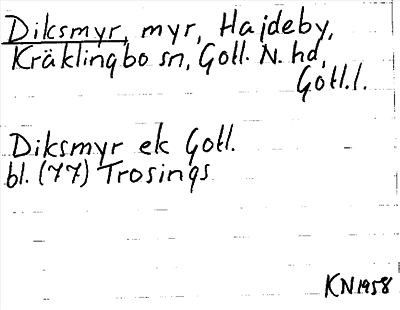 Diksmyr, myr, Hajdeby,
Kräklingbo sn, Gotl. N. hd,
Gotl.l.
Diksmyr ek Gotl.
bl. (77) Trosings
KN 1958